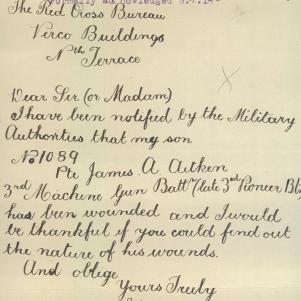 Formally acknowledged 8.7.18
The Red Cross Bureau
Virco Buildings
Nth Terrace
Dear Sir (or Madam)
I have been notified by the Military
Authorities that my son
No 1089
Pte James. A Aitken
3rd Machine Gun Battn (late 3rd Pioneer Bt)
has been wounded and I would
be thankful if you could find out
the nature of his wounds.
And oblige
Yours Truly